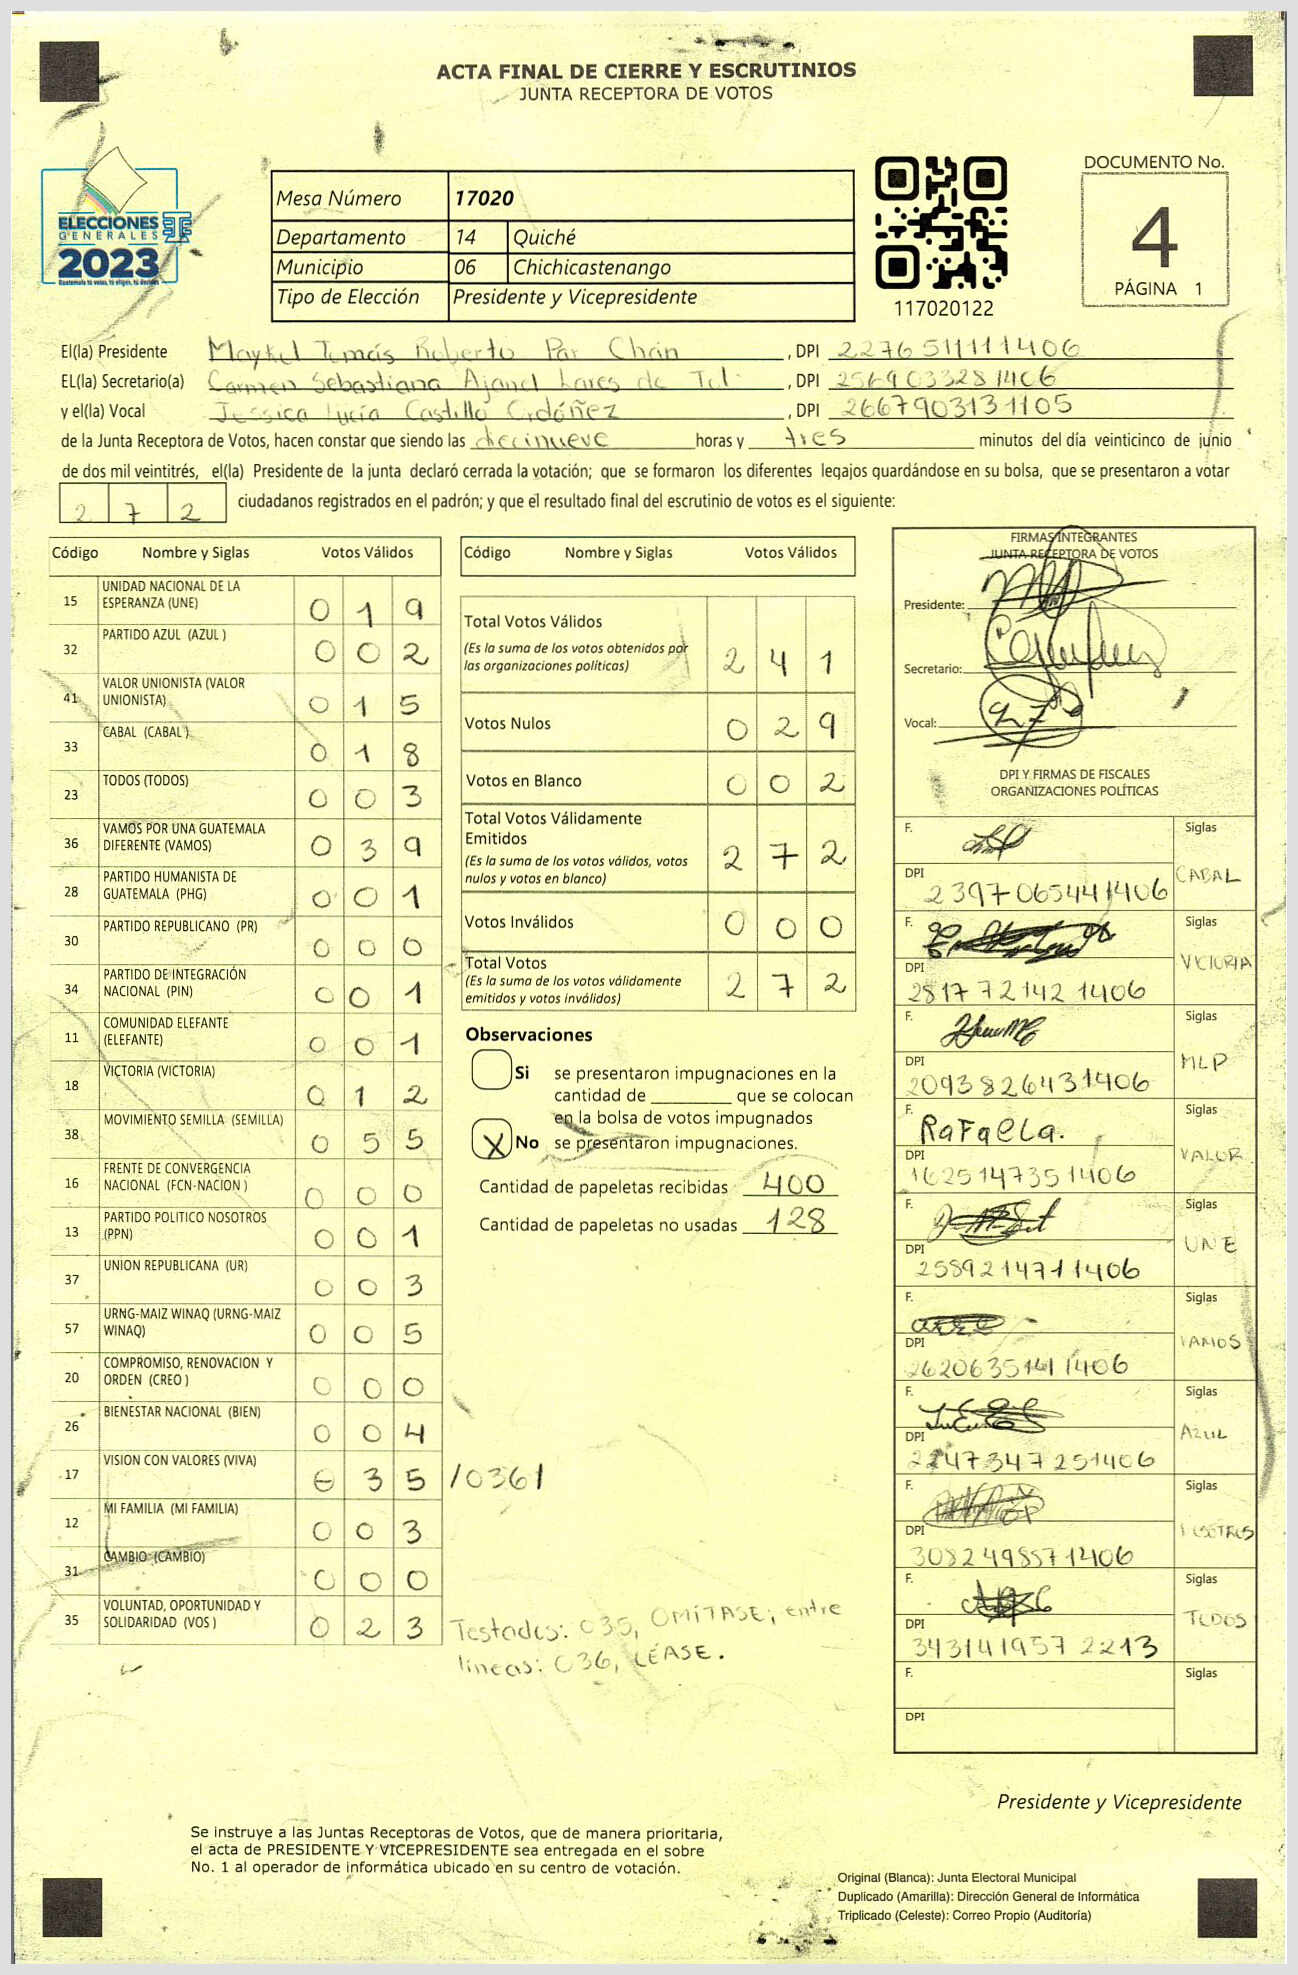 ACTA FINAL DE CIERRE Y ESCRUTINIOS
JUNTA RECEPTORA DE VOTOS
ELECCIONES
GENERALES
2023
Guatemala tu votas, tu eliges, tu decides
Mesa Número 17020
Departamento 14 Quiché
Municipio 06 Chichicastenango
Tipo de Elección Presidente y Vicepresidente
117020122
DOCUMENTO No.
4
PÁGINA 1
El(la) Presidente Maykol Tomás Roberto Par Chán , DPI 2276511111406
EL(la) Secretario(a) Carmen Sebastiana Ajanel Lares de Tol , DPI 2569033281406
y el(la) Vocal Jessica Lucía Castillo Ordóñez , DPI 2667903131105
de la Junta Receptora de Votos, hacen constar que siendo las diecinueve horas y tres minutos del día veinticinco de junio
de dos mil veintitrés, el(la) Presidente de la junta declaró cerrada la votación; que se formaron los diferentes legajos guardándose en su bolsa, que se presentaron a votar
272 ciudadanos registrados en el padrón; y que el resultado final del escrutinio de votos es el siguiente:
Código Nombre y Siglas Votos Válidos
15 UNIDAD NACIONAL DE LA ESPERANZA (UNE) 019
32 PARTIDO AZUL (AZUL ) 002
41 VALOR UNIONISTA (VALOR UNIONISTA) 015
33 CABAL (CABAL ) 018
23 TODOS (TODOS) 003
36 VAMOS POR UNA GUATEMALA DIFERENTE (VAMOS) 039
28 PARTIDO HUMANISTA DE GUATEMALA (PHG) 001
30 PARTIDO REPUBLICANO (PR) 000
34 PARTIDO DE INTEGRACIÓN NACIONAL (PIN) 001
11 COMUNIDAD ELEFANTE (ELEFANTE) 001
18 VICTORIA (VICTORIA) 012
38 MOVIMIENTO SEMILLA (SEMILLA) 055
16 FRENTE DE CONVERGENCIA NACIONAL (FCN-NACION ) 000
13 PARTIDO POLITICO NOSOTROS (PPN) 001
37 UNION REPUBLICANA (UR) 003
57 URNG-MAIZ WINAQ (URNG-MAIZ WINAQ) 005
20 COMPROMISO, RENOVACION Y ORDEN (CREO ) 000
26 BIENESTAR NACIONAL (BIEN) 004
17 VISION CON VALORES (VIVA) 035 /036/
12 MI FAMILIA (MI FAMILIA) 003
31 CAMBIO (CAMBIO) 000
35 VOLUNTAD, OPORTUNIDAD Y SOLIDARIDAD (VOS ) 023
Testados: 035, OMÍTASE; entre
líneas: 036, LÉASE.
Código Nombre y Siglas Votos Válidos
Total Votos Válidos 241
(Es la suma de los votos obtenidos por
las organizaciones políticas)
Votos Nulos 029
Votos en Blanco 002
Total Votos Válidamente
Emitidos 272
(Es la suma de los votos válidos, votos
nulos y votos en blanco)
Votos Inválidos 000
Total Votos 272
(Es la suma de los votos válidamente
emitidos y votos inválidos)
Observaciones
Si se presentaron impugnaciones en la
cantidad de ________ que se colocan
en la bolsa de votos impugnados
X No se presentaron impugnaciones.
Cantidad de papeletas recibidas 400
Cantidad de papeletas no usadas 128
FIRMAS INTEGRANTES
JUNTA RECEPTORA DE VOTOS
Presidente:
Secretario:
Vocal:
DPI Y FIRMAS DE FISCALES
ORGANIZACIONES POLÍTICAS
F. Siglas
DPI 2397065441406 CABAL
F. Siglas
DPI 2817721421406 VICTORIA
F. Siglas
DPI 2093826431406 MLP
F. RaFaeLa. Siglas
DPI 1625147351406 VALOR
F. Siglas
DPI 2589214711406 UNE
F. Siglas
DPI 2620635141406 VAMOS
F. Siglas
DPI 2247347251406 AZUL
F. Siglas
DPI 3082498571406 NOSOTROS
F. Siglas
DPI 3431419572213 TODOS
F. Siglas
DPI
Presidente y Vicepresidente
Se instruye a las Juntas Receptoras de Votos, que de manera prioritaria,
el acta de PRESIDENTE Y VICEPRESIDENTE sea entregada en el sobre
No. 1 al operador de informática ubicado en su centro de votación.
Original (Blanca): Junta Electoral Municipal
Duplicado (Amarilla): Dirección General de Informática
Triplicado (Celeste): Correo Propio (Auditoría)